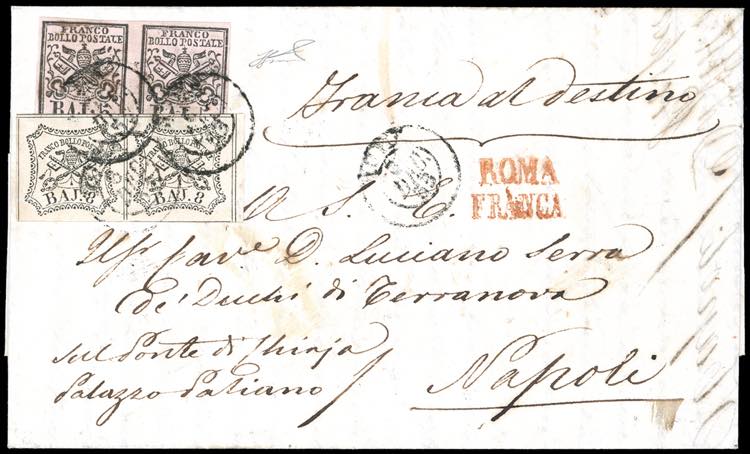 FRANCO
BOLLO POSTALE
BAJ. 5
FRANCO
BOLLO POSTALE
BAJ. 5
FRANCO BOLLO POSTALE
BAJ. 8
FRANCO BOLLO POSTALE
BAJ. 8
Franca al destino
ROMA
FRANCA
A S. E.
D. Luciano Serra
de' Duchi di Terranova
sul Ponte di Chiaja
Palazzo
Napoli